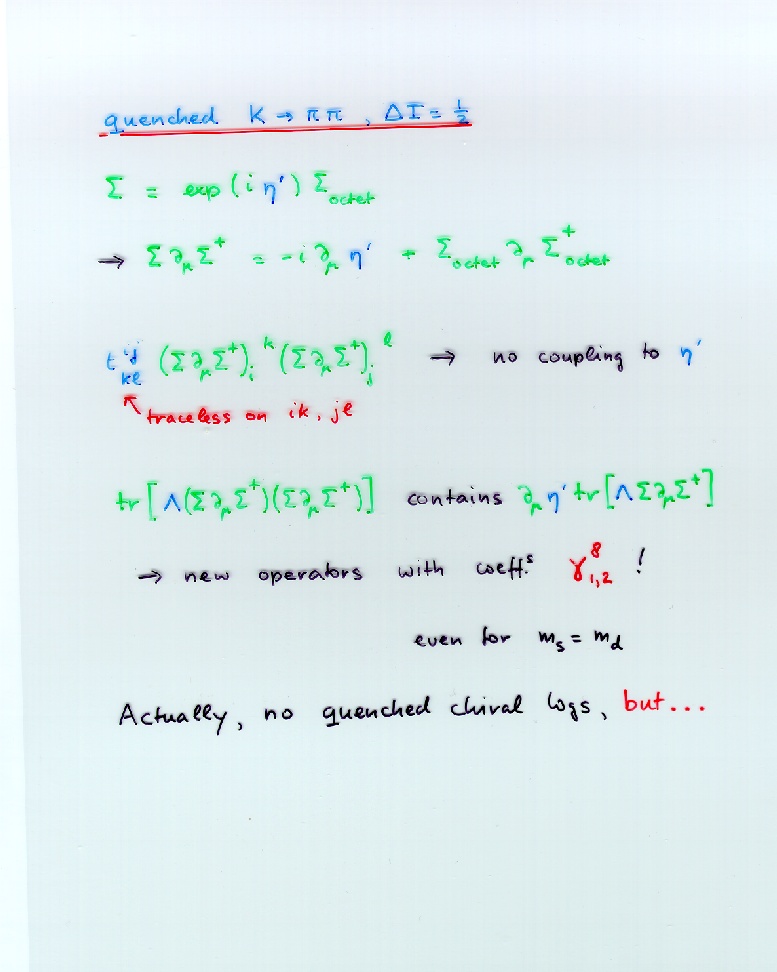 quenched K → ππ , ΔI = ½
Σ = exp(i η') Σ_octet
→ Σ ∂_μ Σ^+ = -i ∂_μ η' + Σ_octet ∂_μ Σ^+_octet
t^{ij}_{kl} (Σ ∂_μ Σ^+)_i^k (Σ ∂_μ Σ^+)_j^l → no coupling to η'
traceless on ik, jl
tr[Λ(Σ ∂_μ Σ^+)(Σ ∂_μ Σ^+)] contains ∂_μ η' tr[Λ Σ ∂_μ Σ^+]
→ new operators with coeff.^s γ^8_{1,2} !
even for m_s = m_d
Actually, no quenched chiral logs, but...